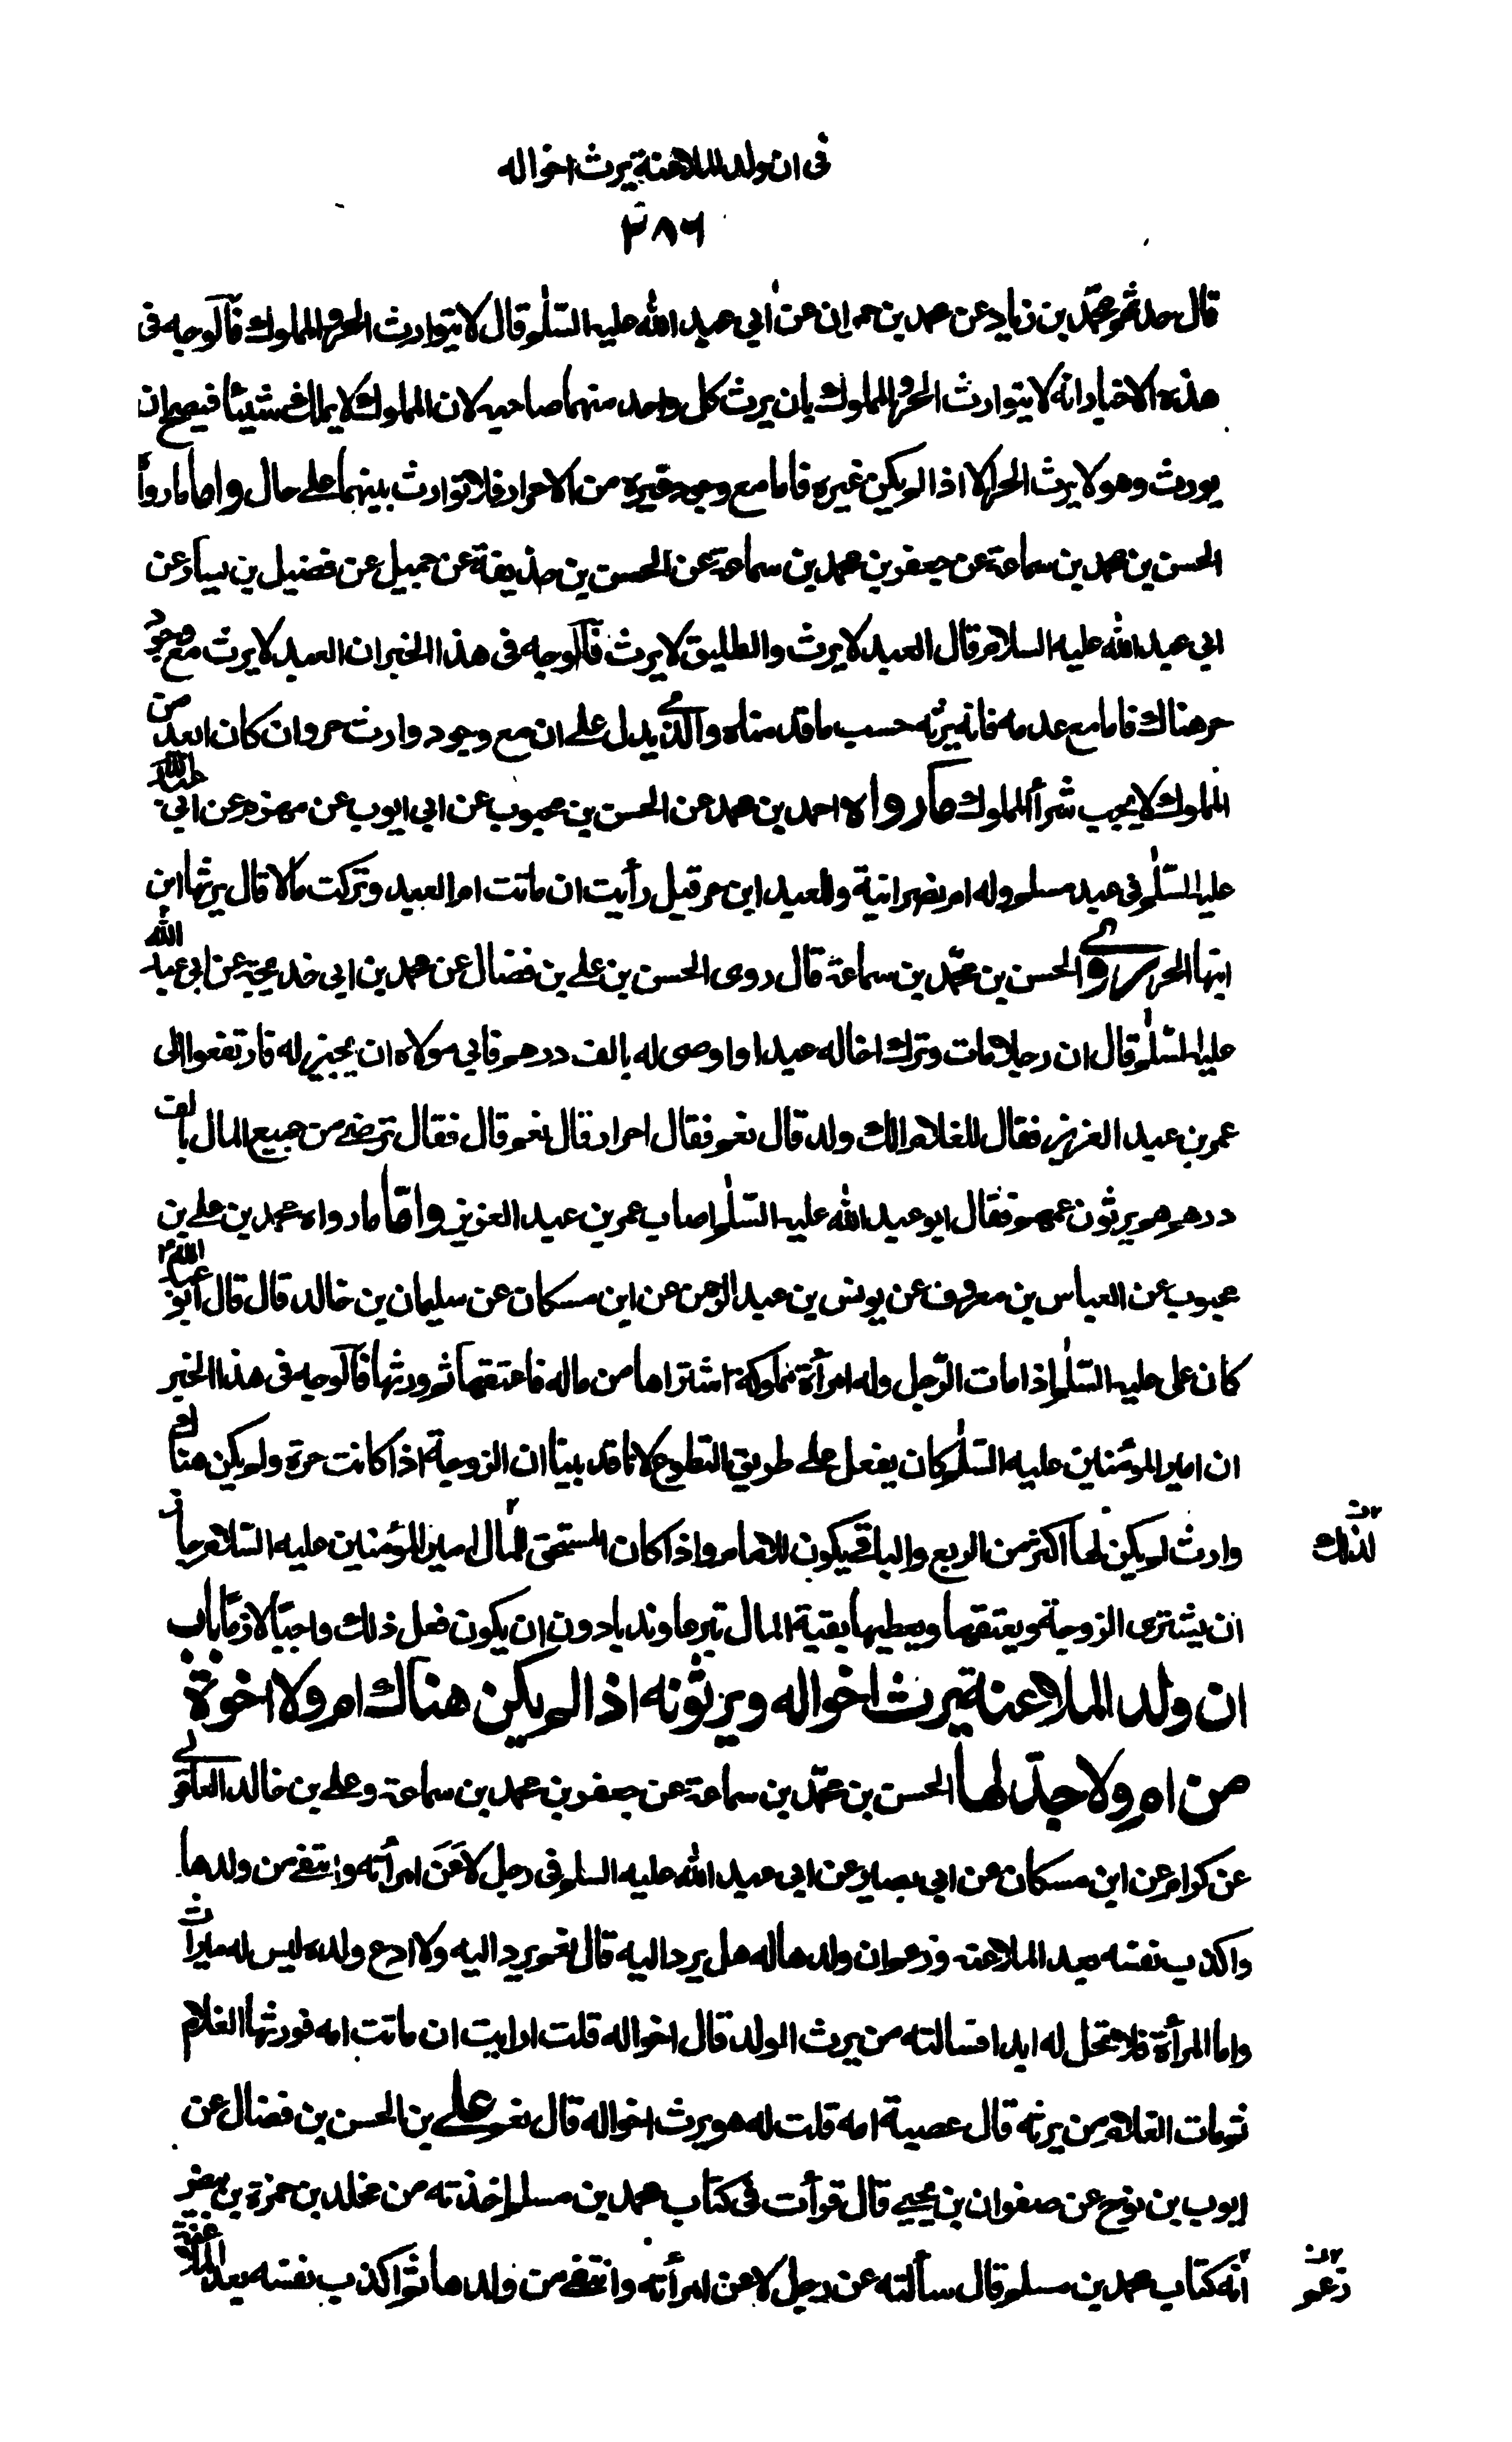 فى ان ولد الملاعنة يرث اخواله
٣٨٦
قال حدثهم محمّد بن زياد عن محمد بن حمران عن أبي عبد الله عليه السّلم قال لا يتوارث الحرّ والمملوك فآلوجه فى
هذه الاخبار انه لا يتوارث الحرّ والمملوك بان يرث كل واحد منهما صاحبه لان المملوك لا يملك شيئا فيصح ان
يورث وهو لا يرث الحر الا اذا لم يكن غيره فاما مع وجود غيره من الاحرار فلا توارث بينهما على حال واما ما رواه
الحسن بن محمد بن سماعة عن جعفر بن محمد بن سماعة عن الحسن بن حذيفة عن جميل عن فضيل بن يسار عن
ابي عبد الله عليه السلام قال العبد لا يرث والطليق لا يرث فآلوجه فى هذا الخبر ان العبد لا يرث مع وجود
حر هناك فاما مع عدمه فانه يرثه حسب ما قدمناه والّذي يدل على ان مع وجود وارث حر وان كان ابعد من
المملوك لا يجب شرأ المملوك ما رواه احمد بن محمد عن الحسن بن محبوب عن ابي ايوب عن مهزم عن ابي عبد الله
عليه السّلم فى عبد مسلم وله ام نصرانية وللعبد ابن حر قيل رأيت ان ماتت ام العبد وتركت مالا قال يرثها ابن
ابنها الحر روى الحسن بن محمّد بن سماعة قال روى الحسن بن على بن فضال عن محمد بن ابي خديجة عن ابي عبد الله
عليه السّلم قال ان رجلا مات وترك اخا له عبدا واوصى له بالف درهم فابي مولاه ان يجيز له فارتفعوا الى
عمر بن عبد العزيز فقال للغلام الك ولد قال نعم فقال احرار قال نعم قال فقال ترضى من جميع المال بالف
درهم هم يرثون عمهم فقال ابو عبد الله عليه السّلم اصاب عمر بن عبد العزيز وامّا ما رواه محمد بن على بن
محبوب عن العباس بن معروف عن يونس بن عبد الرحمن عن ابن مسكان عن سليمان بن خالد قال قال ابو عبد الله ع
كان على عليه السّلم اذا مات الرّجل وله امرأة مملوكة اشتراها من ماله فاعتقها ثم ورثها فآلوجه فى هذا الخبر
ان امير المؤمنين عليه السّلم كان يفعل على طريق التطوع لانا قد بينا ان الزوجة اذا كانت حرة ولم يكن هناك
وارث لم يكن لها اكثر من الربع والباقي يكون للامام واذا كان المستحق للمال امير المؤمنين عليه السّلام جاز
لذلك
ان يشترى الزوجة ويعتقها ويعطيها بقية المال تبرعا وندبا دون ان يكون فعل ذلك واجبًا لازمًا باب
ان ولد الملاعنة يرث اخواله ويرثونه اذا لم يكن هناك ام ولا اخوة
من ام ولا جدّ لها الحسن بن محمّد بن سماعة عن جعفر بن محمد بن سماعة وعلى بن خالد العاقولي
عن كرام عن ابن مسكان عن ابي بصير عن ابي عبد الله عليه السلم فى رجل لاعَنَ امرأته وانتفى من ولدها
واكذب نفسه بعد الملاعنة وزعم ان ولدها له هل يرد اليه قال نعم يرد اليه ولا ادع ولده ليس له ميراث
واما المرأة فلا تحل له ابدا فسالته من يرث الولد قال اخواله قلت ارايت ان ماتت امه فورثها الغلام
ثم مات الغلام من يرثه قال عصبة امه قلت له هو يرث اخواله قال نعم على بن الحسن بن فضال عن
ايوب بن نوح عن صفوان بن يحيى قال قرأت فى كتاب محمد بن مسلم اخذته من مخلد بن حمزة بن بيض
انه كتاب محمد بن مسلم قال سألته عن رجل لاعن امرأته وانتفى من ولدها ثم اكذب نفسه بعد الملاعنة
زعم